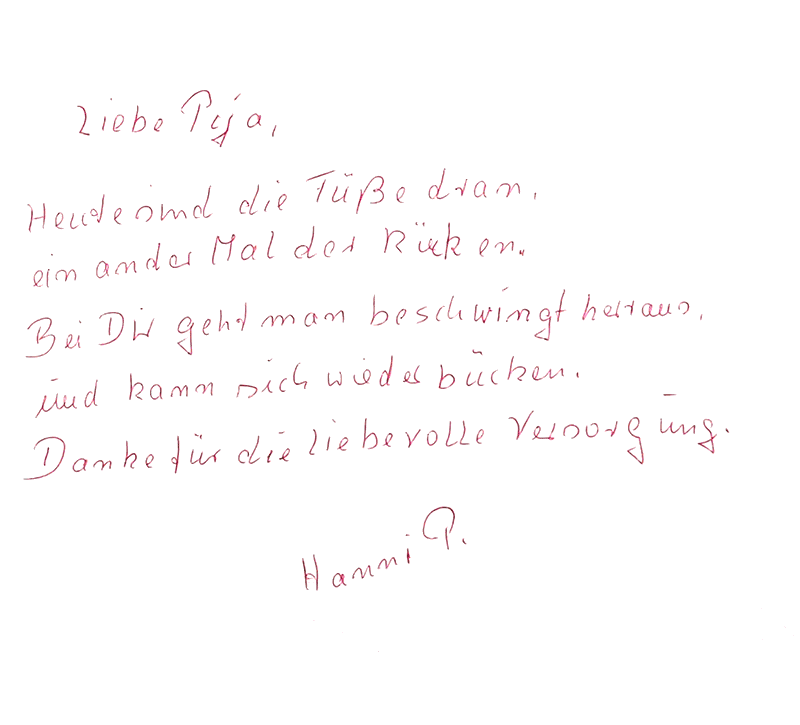 Liebe Pija,
Heute sind die Füße dran,
ein ander Mal der Rücken.
Bei Dir geht man beschwingt heraus,
und kann sich wieder bücken.
Danke für die liebevolle Versorgung.
Hanni P.